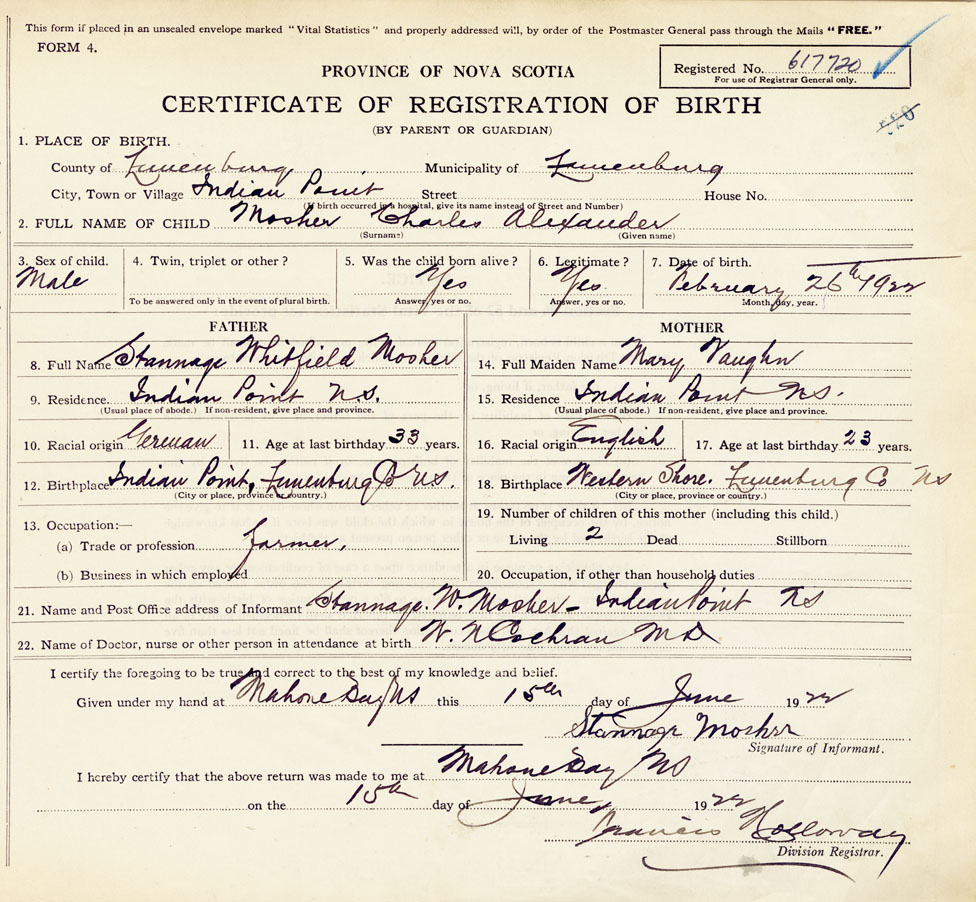 This form if placed in an unsealed envelope marked "Vital Statistics" and properly addressed will, by order of the Postmaster General pass through the Mails "FREE."
FORM 4.
Registered No. 617720
For use of Registrar General only.
PROVINCE OF NOVA SCOTIA
CERTIFICATE OF REGISTRATION OF BIRTH
(BY PARENT OR GUARDIAN)
1. PLACE OF BIRTH.
County of Lunenburg, Municipality of Lunenburg
City, Town or Village Indian Point Street House No.
(If birth occurred in a hospital, give its name instead of Street and Number)
2. FULL NAME OF CHILD Mosher Charles Alexander
(Surname) (Given name)
3. Sex of child. 4. Twin, triplet or other? 5. Was the child born alive? 6. Legitimate? 7. Date of birth.
Male Yes Yes February 26th 1922
To be answered only in the event of plural birth. Answer, yes or no. Answer, yes or no. Month, day, year.
FATHER MOTHER
8. Full Name Stannage Whitfield Mosher 14. Full Maiden Name Mary Vaughn
9. Residence. Indian Point N.S. 15. Residence Indian Point N.S.
(Usual place of abode.) If non-resident, give place and province. (Usual place of abode.) If non-resident, give place and province.
10. Racial origin German 11. Age at last birthday 33 years. 16. Racial origin English 17. Age at last birthday 23 years.
12. Birthplace Indian Point, Lunenburg Co N.S. 18. Birthplace Western Shore. Lunenburg Co NS
(City or place, province or country.) (City or place, province or country.)
13. Occupation:— 19. Number of children of this mother (including this child.)
(a) Trade or profession farmer. Living 2 Dead Stillborn
(b) Business in which employed 20. Occupation, if other than household duties
21. Name and Post Office address of Informant Stannage. W. Mosher - Indian Point NS
22. Name of Doctor, nurse or other person in attendance at birth W. N Cochran MD
I certify the foregoing to be true and correct to the best of my knowledge and belief.
Given under my hand at Mahone Bay NS this 15th day of June 1922
Stannage Mosher
Signature of Informant.
I hereby certify that the above return was made to me at Mahone Bay NS
on the 15th day of June, 1922
Francis Holloway
Division Registrar.